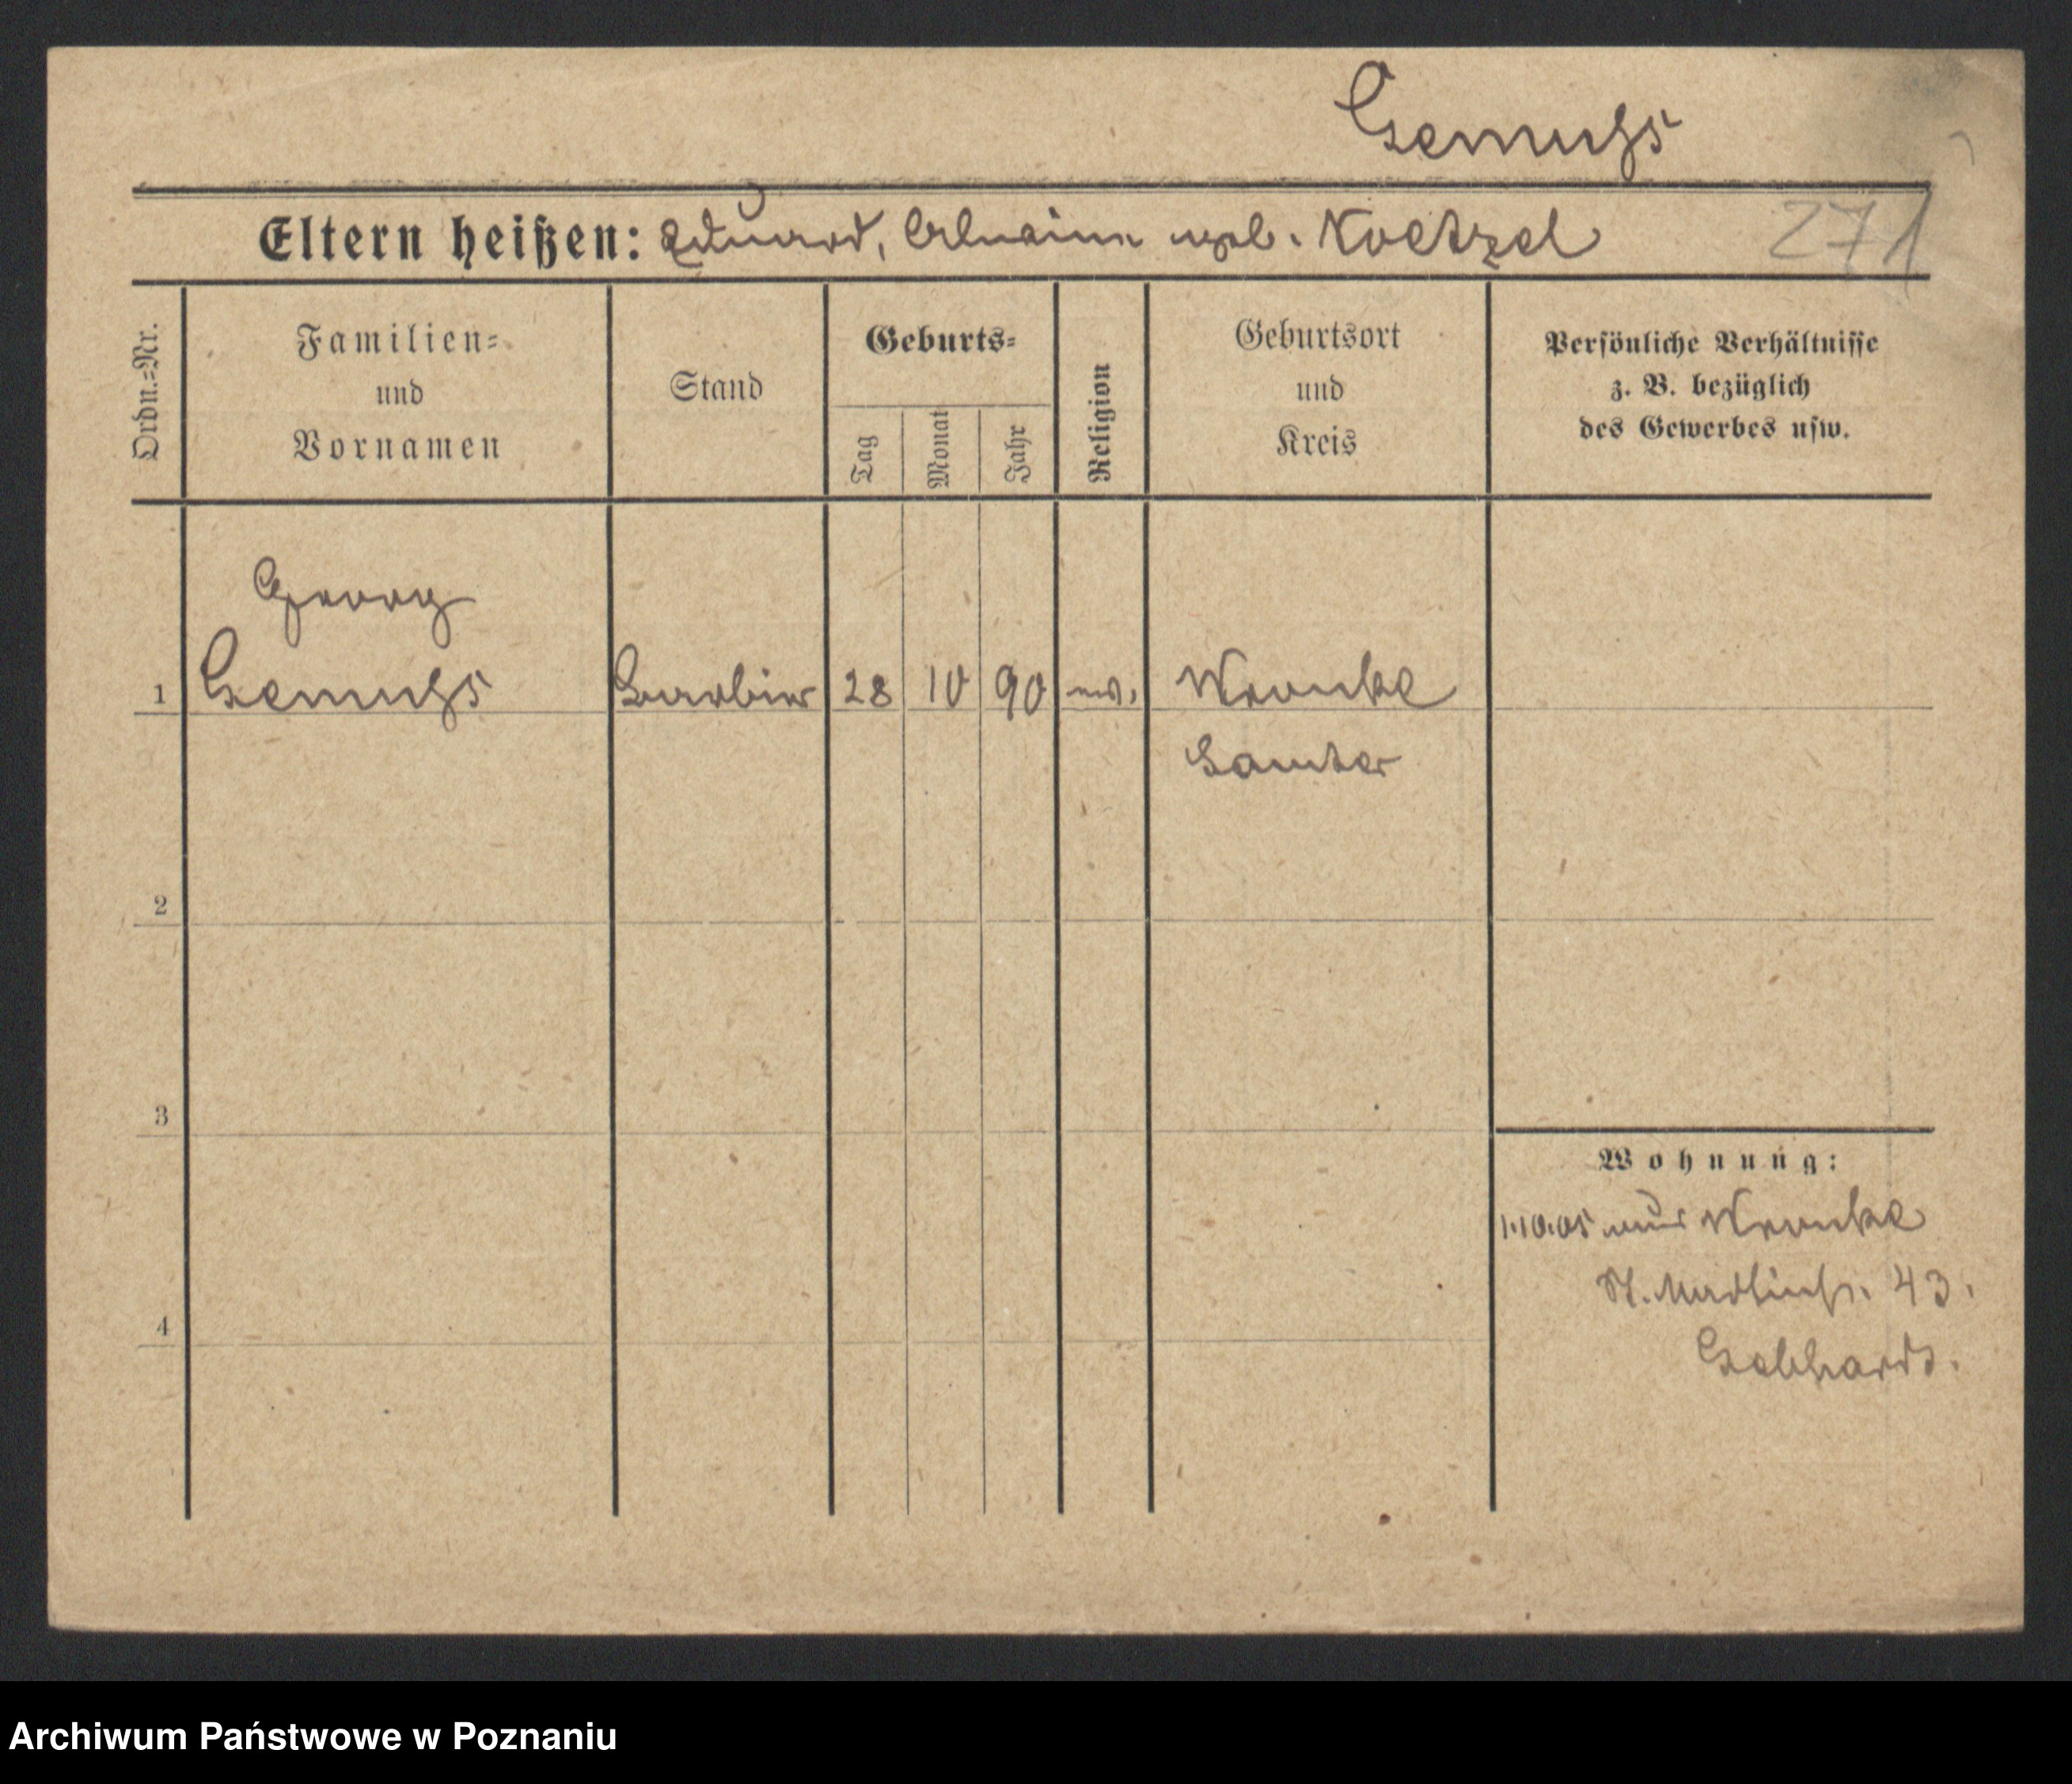 Gemuhs
271
Eltern heißen: Eduard, geb. Koetzel
Ordn.=Nr.
Familien=
und
Vornamen
Stand
Geburts=
Tag
Monat
Jahr
Religion
Geburtsort
und
Kreis
Persönliche Verhältnisse
z. B. bezüglich
des Gewerbes usw.
Georg
1 Gemuhs Barbier 28 10 90 ev. Wronke
Samter
2
3
Wohnung:
1.10.05 aus Wronke
St. Martinstr. 43.
Gebhardt.
4
Archiwum Państwowe w Poznaniu